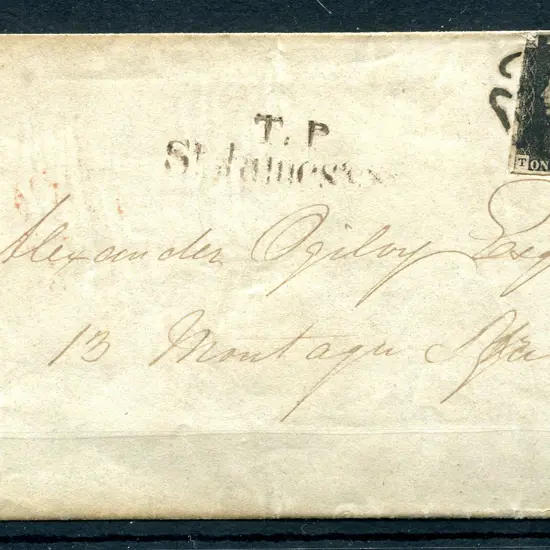 T.P
St James's
T ON
Alexander Ogilvy Esq
13 Montagu